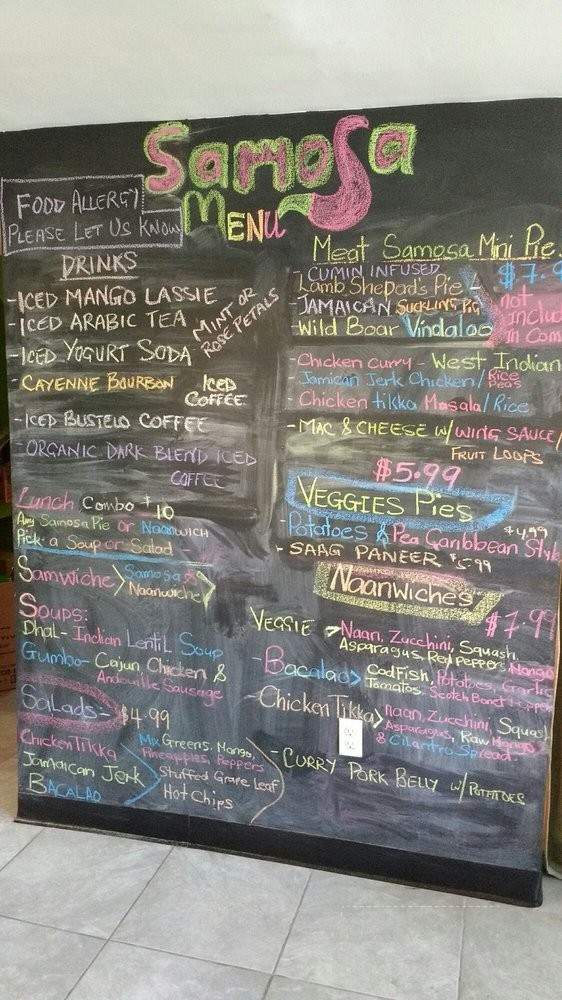 Samosa
Menu
FOOD ALLERGY
PLEASE LET US KNOW
DRINKS
- ICED MANGO LASSIE
- ICED ARABIC TEA
MINT OR
ROSE PETALS
- ICED YOGURT SODA
- CAYENNE BOURBON ICED
COFFEE
- ICED BUSTELO COFFEE
- ORGANIC DARK BLEND ICED
COFFEE
Lunch Combo $10
Any Samosa Pie or Naanwich
Pick a Soup or Salad
Samwiche > Samosa &
Naanwiche
Soups:
Dhal - Indian Lentil Soup
Gumbo - Cajun Chicken &
Andouille Sausage
Salads - $4.99
Chicken Tikka
Jamaican Jerk
Bacalao
Mix Greens, Mango,
Pineapples, Peppers
Stuffed Grape Leaf
Hot Chips
Meat Samosa Mni Pie
- CUMIN INFUSED
Lamb Shepard's Pie -
- JAMAICAN SUCKLING PIG
Wild Boar Vindaloo
$7.9
not
Includ
In Com
- Chicken Curry - West Indian
- Jamican Jerk Chicken / Rice
Peas
- Chicken tikka Masala / Rice
- MAC & CHEESE W/ WING SAUCE /
FRUIT LOOPS
$5.99
VEGGIES Pies
- Potatoes & Pea Caribbean Style
$4.99
- SAAG PANEER $5.99
Naanwiches
$7.99
VEGGIE > Naan, Zucchini, Squash,
Asparagus, Red Peppers, Mango
- Bacalao > Codfish, Potatoes, Garlic
Tomatos, Scotch Bonet Pepper
- Chicken Tikka > Naan, Zucchini, Squash
Asparagus, Raw Mango
& Cilantro Spread
- CURRY PORK BELLY W/ POTATOES